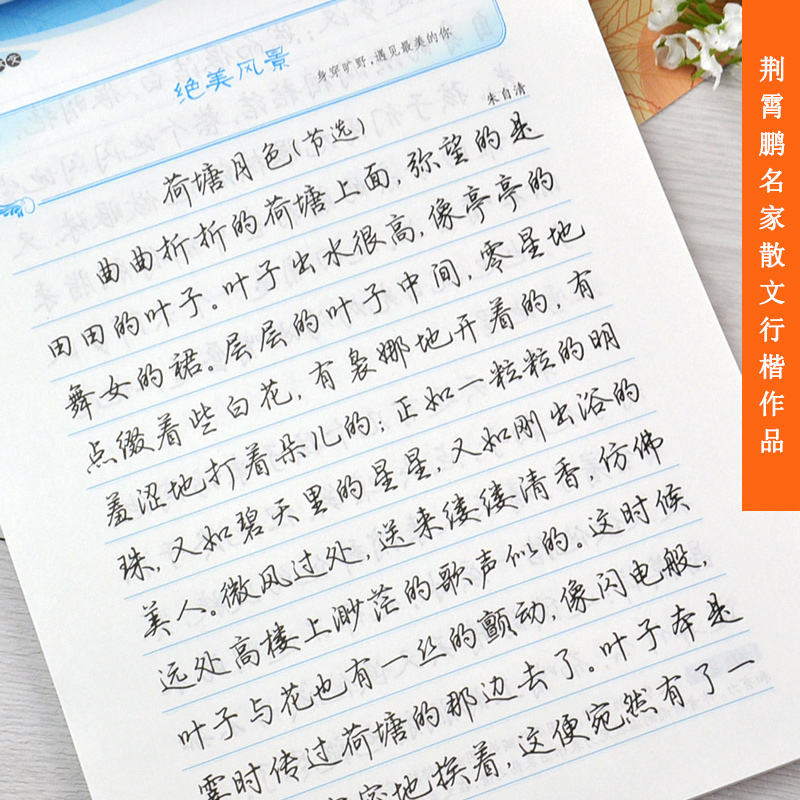 绝美风景
身穿旷野，遇见最美的你
荷塘月色(节选)
朱自清
曲曲折折的荷塘上面，弥望的是
田田的叶子。叶子出水很高，像亭亭的
舞女的裙。层层的叶子中间，零星地
点缀着些白花，有袅娜地开着的，有
羞涩地打着朵儿的；正如一粒粒的明
珠，又如碧天里的星星，又如刚出浴的
美人。微风过处，送来缕缕清香，仿佛
远处高楼上渺茫的歌声似的。这时候
叶子与花也有一丝的颤动，像闪电般，
霎时传过荷塘的那边去了。叶子本是
密地挨着，这便宛然有了一
荆霄鹏名家散文行楷作品